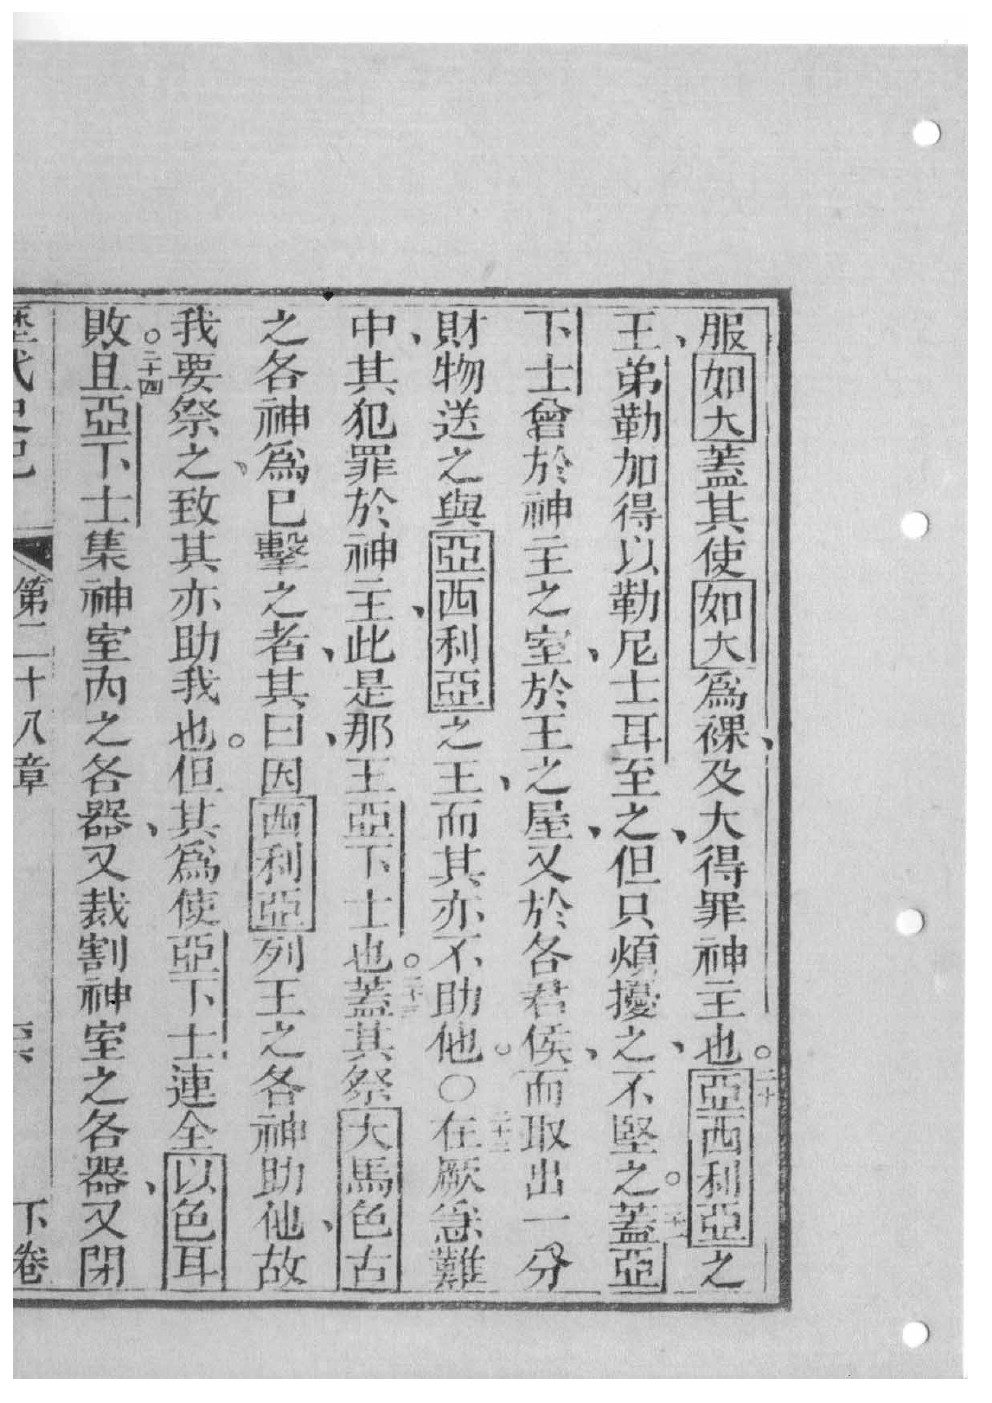 服如大蓋其使如大爲裸、及大得罪神主也。二十亞西利亞之
王、弟勒加得以勒尼士耳至之、但只煩擾之、不堅之。二十一蓋亞
下士曾於神主之室、於王之屋、又於各君侯、而取出一分
財物送之與亞西利亞之王、而其亦不助他。○二十二在厥急難
中、其犯罪於神主、此是那王亞下士也。二十三蓋其祭大馬色古
之各神爲已擊之者、其曰、因西利亞列王之各神助他、故
我要祭之、致其亦助我也。但其爲使亞下士連全以色耳
敗。二十四且亞下士集神室內之各器、又裁割神室之各器、又閉
歷代史記 第二十八章 下卷